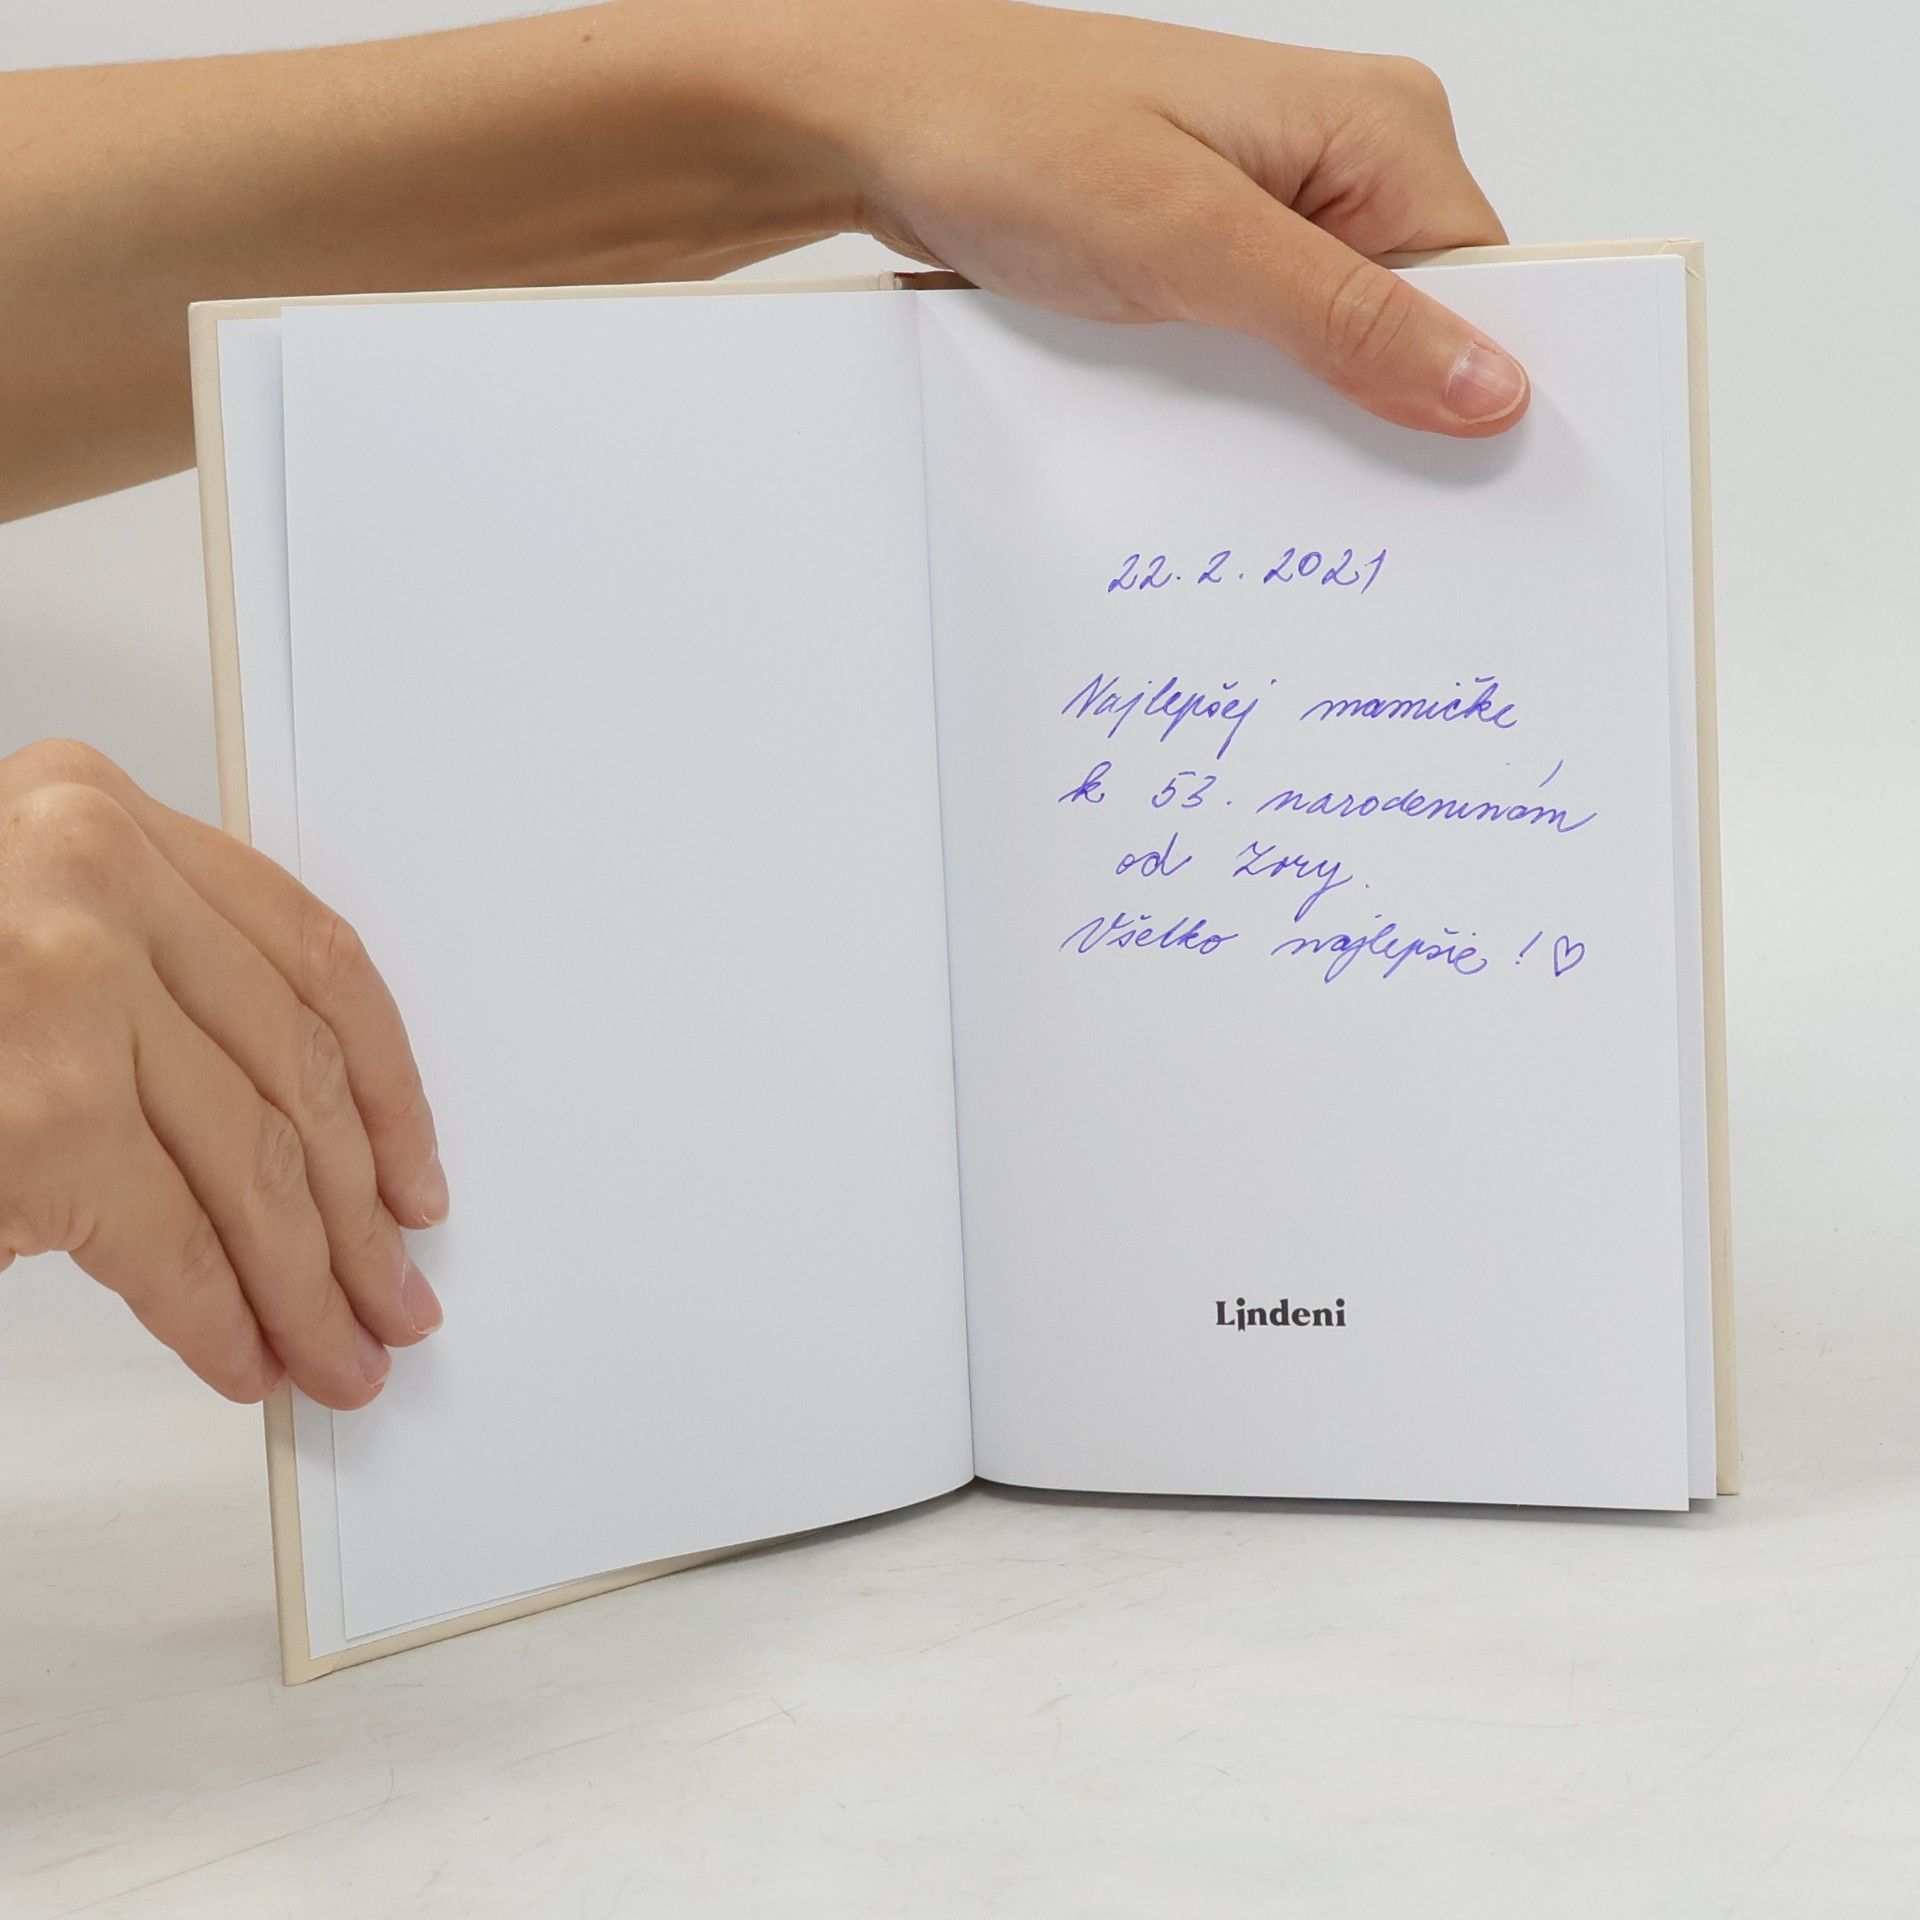 22. 2. 2021
Najlepšej mamičke
k 53. narodeninám
od Zory.
Všetko najlepšie! ♡
Lindeni